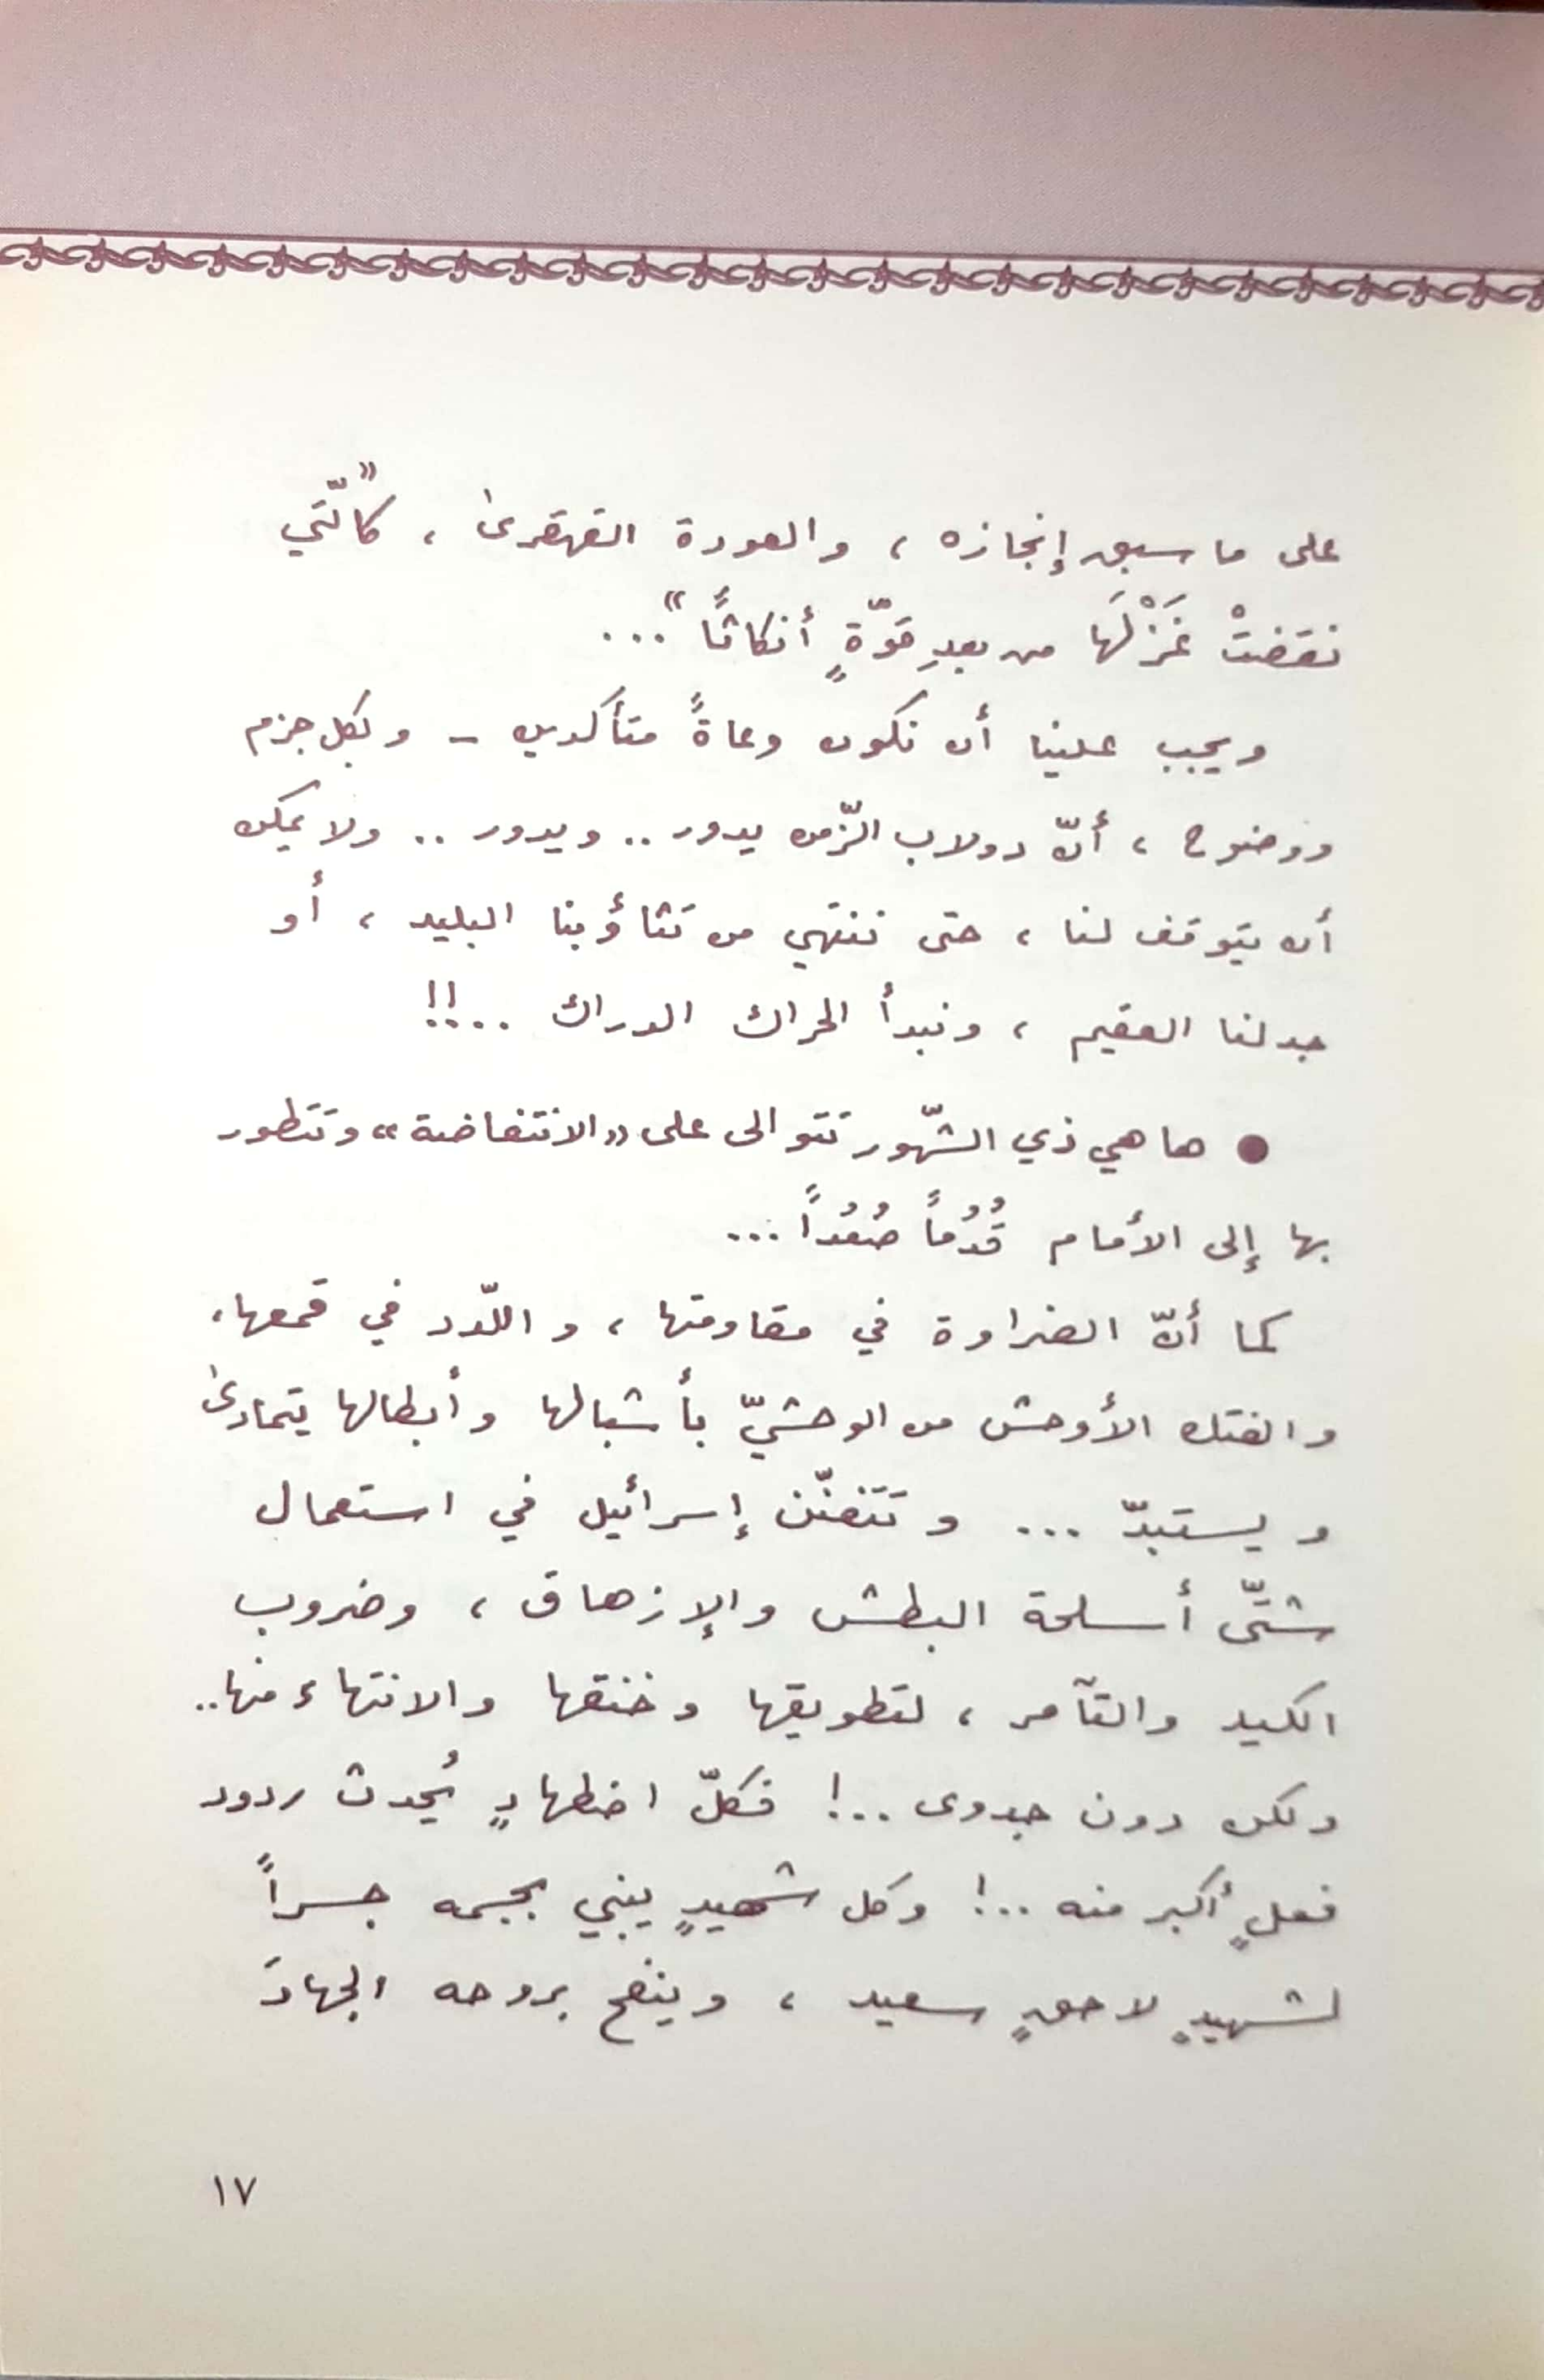 على ما سبق إنجازه ، والعودة القهقرىٰ ، «كالّتي
نقضتْ غَزْلَها من بعدِ قوّةٍ أنكاثاً» ...
ويجب علينا أن نكون وعاةً متأكدين - وبكل جزم
ووضوح ، أنّ دولاب الزّمن يدور .. ويدور .. ولا يمكن
أن يتوقف لنا ، حتى ننتهي من تثاؤبنا البليد ، أو
جدلنا العقيم ، ونبدأ الحراك الدراك ..!!
● ها هي ذي الشّهور تتوالى على «الانتفاضة» وتتطور
بها إلى الأمام قُدُماً صُعُداً ...
كما أنّ الضراوة في مقاومتها ، واللّدد في قمعها ،
والفتك الأوحش من الوحشيّ بأشبالها وأبطالها يتمادىٰ
ويستبدّ ... وتَتَفنّن إسرائيل في استعمال
شتّى أسلحة البطش والإزهاق ، وضروب
الكيد والتآمر ، لتطويقها وخنقها والانتهاء منها ..
ولكن دون جدوى ..! فكلّ اضطهادٍ يُحدث ردود
فعلٍ أكبر منه ..! وكل شهيدٍ يبني بجسمه جسراً
لشهيدٍ لاحقٍ سعيد ، وينفح بروحه الجهادَ
١٧